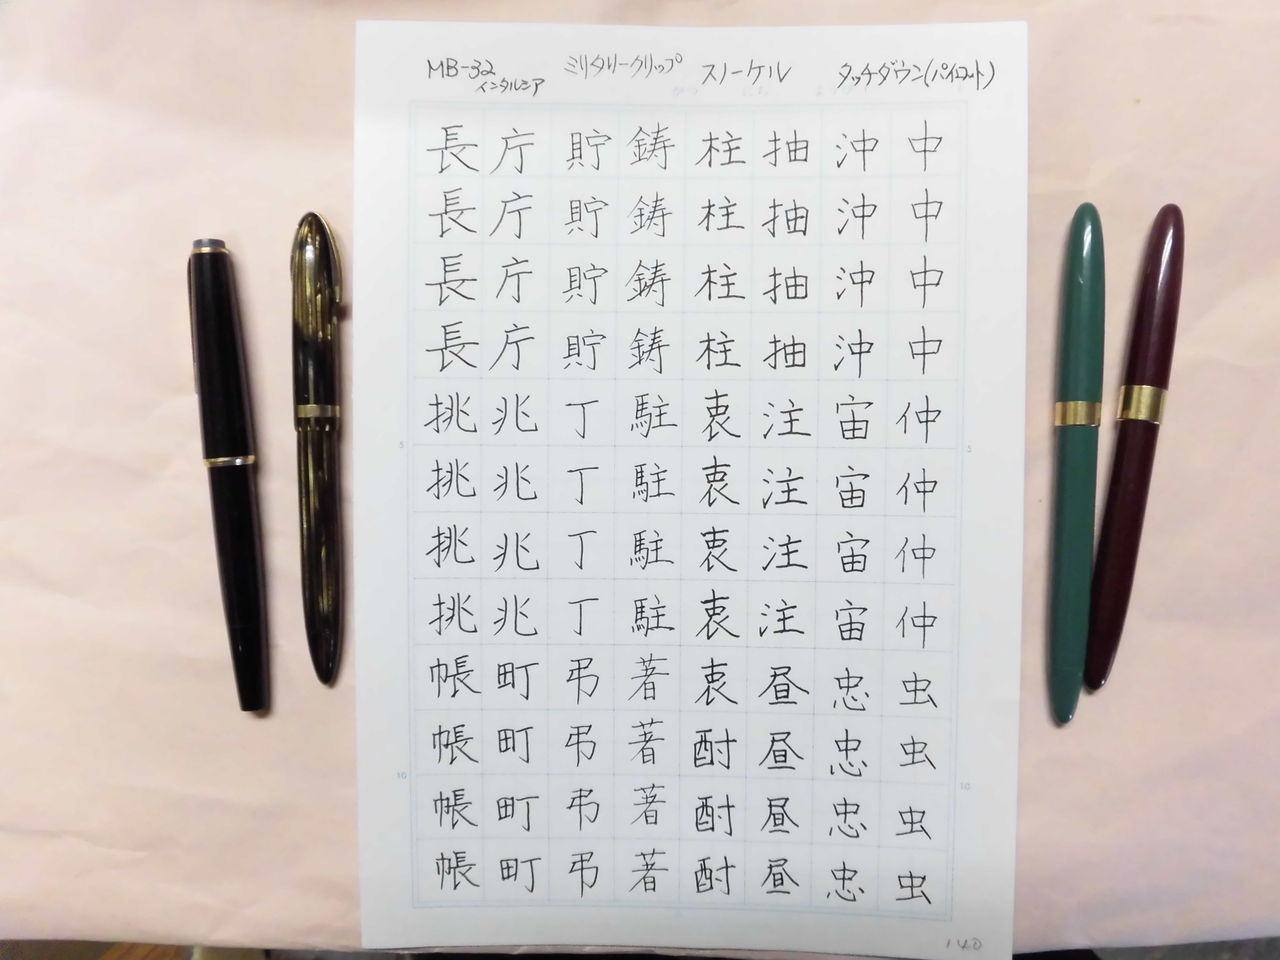 MB-32
インタルシア
ミリタリークリップ
スノーケル
タッチダウン(パイロット)
中中中中仲仲仲仲虫虫虫虫
沖沖沖沖宙宙宙宙忠忠忠忠
抽抽抽抽注注注注昼昼昼昼
柱柱柱柱衷衷衷衷衷酎酎酎
鋳鋳鋳鋳駐駐駐駐著著著著
貯貯貯貯丁丁丁丁弔弔弔弔
庁庁庁庁兆兆兆兆町町町町
長長長長挑挑挑挑帳帳帳帳
5
10
5
10
140